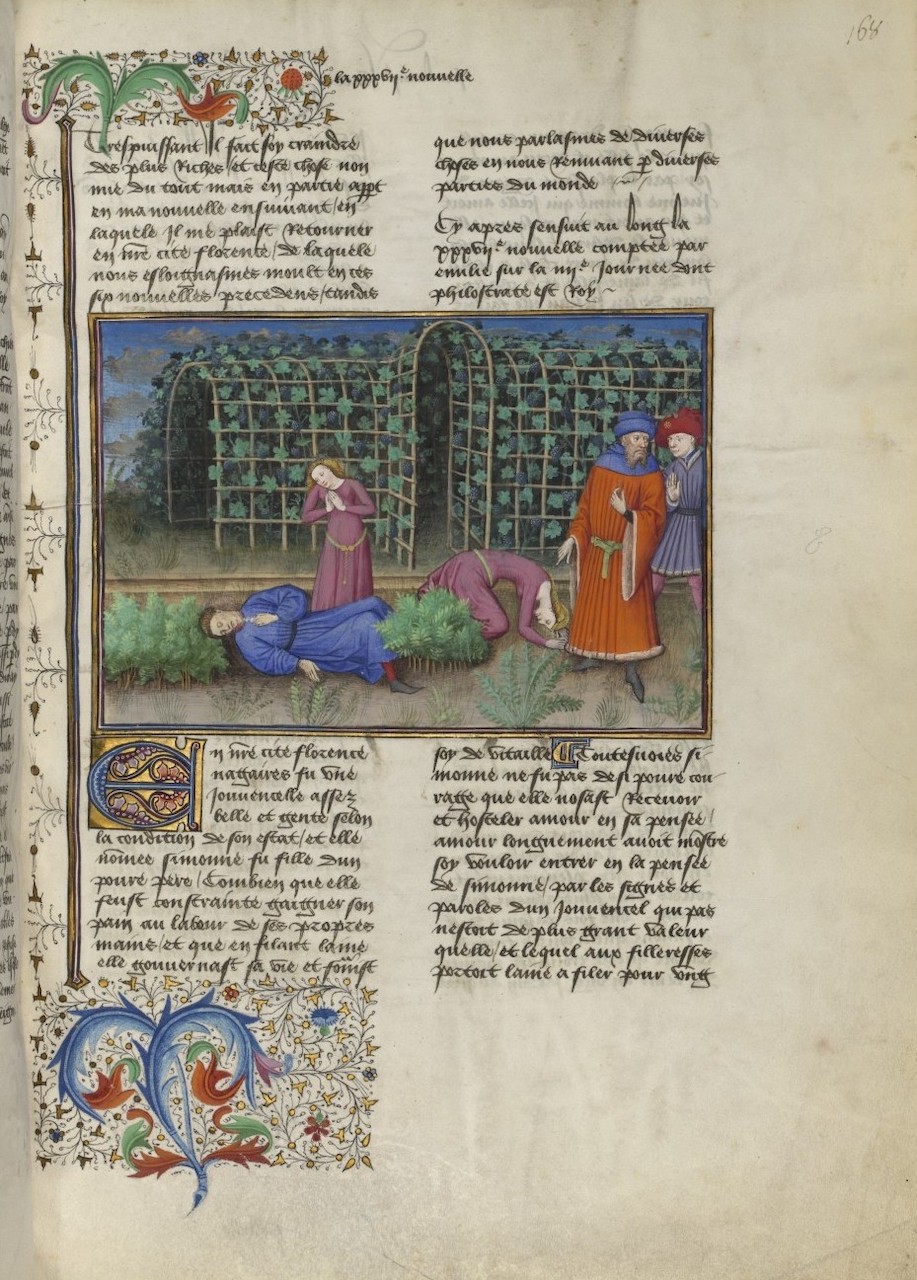 168
la xxxvii.e nouvelle
Trespuissant Il fait soy craindre
des plus Riches et ceste chose non
mie du tout mais en partie appt
en ma nouvelle ensuivant / en
laquele Il me plaist Retourner
en nre cite florente / de laquele
nous esloignasmes moult en ces
six nouvelles precedens / tandis
que nous parlasmes de diverses
choses en nous Remuant p diverses
parties du monde
Cy apres sensuit au long la
xxxvii.e nouvelle comptee par
emilie sur la iiii.e Journee dont
philostrate est Roy
En nre cite florence
nagaires fu vne
Jouvencelle assez
belle et gente selon
la condition de son estat / et elle
nomee simonne fu fille dun
poure pere / Combien que elle
feust constrainte gaigner son
pain au labour de ses propres
mains / et que en filant laine
elle gouvernast sa vie et
soy de vitaille Toutesuoies si
monne ne fu pas de si poure cou
raige que elle nosast Recevoir
et hosteler amour en sa pensee /
amour longuement avoit mostre
soy vouloir entrer en la pensee
de simonne / par les signes et
paroles dun Jouvencel qui pas
nestoit de plus grant valeur
quelle / et lequel aux filleresses
portoit laine a filer pour vng